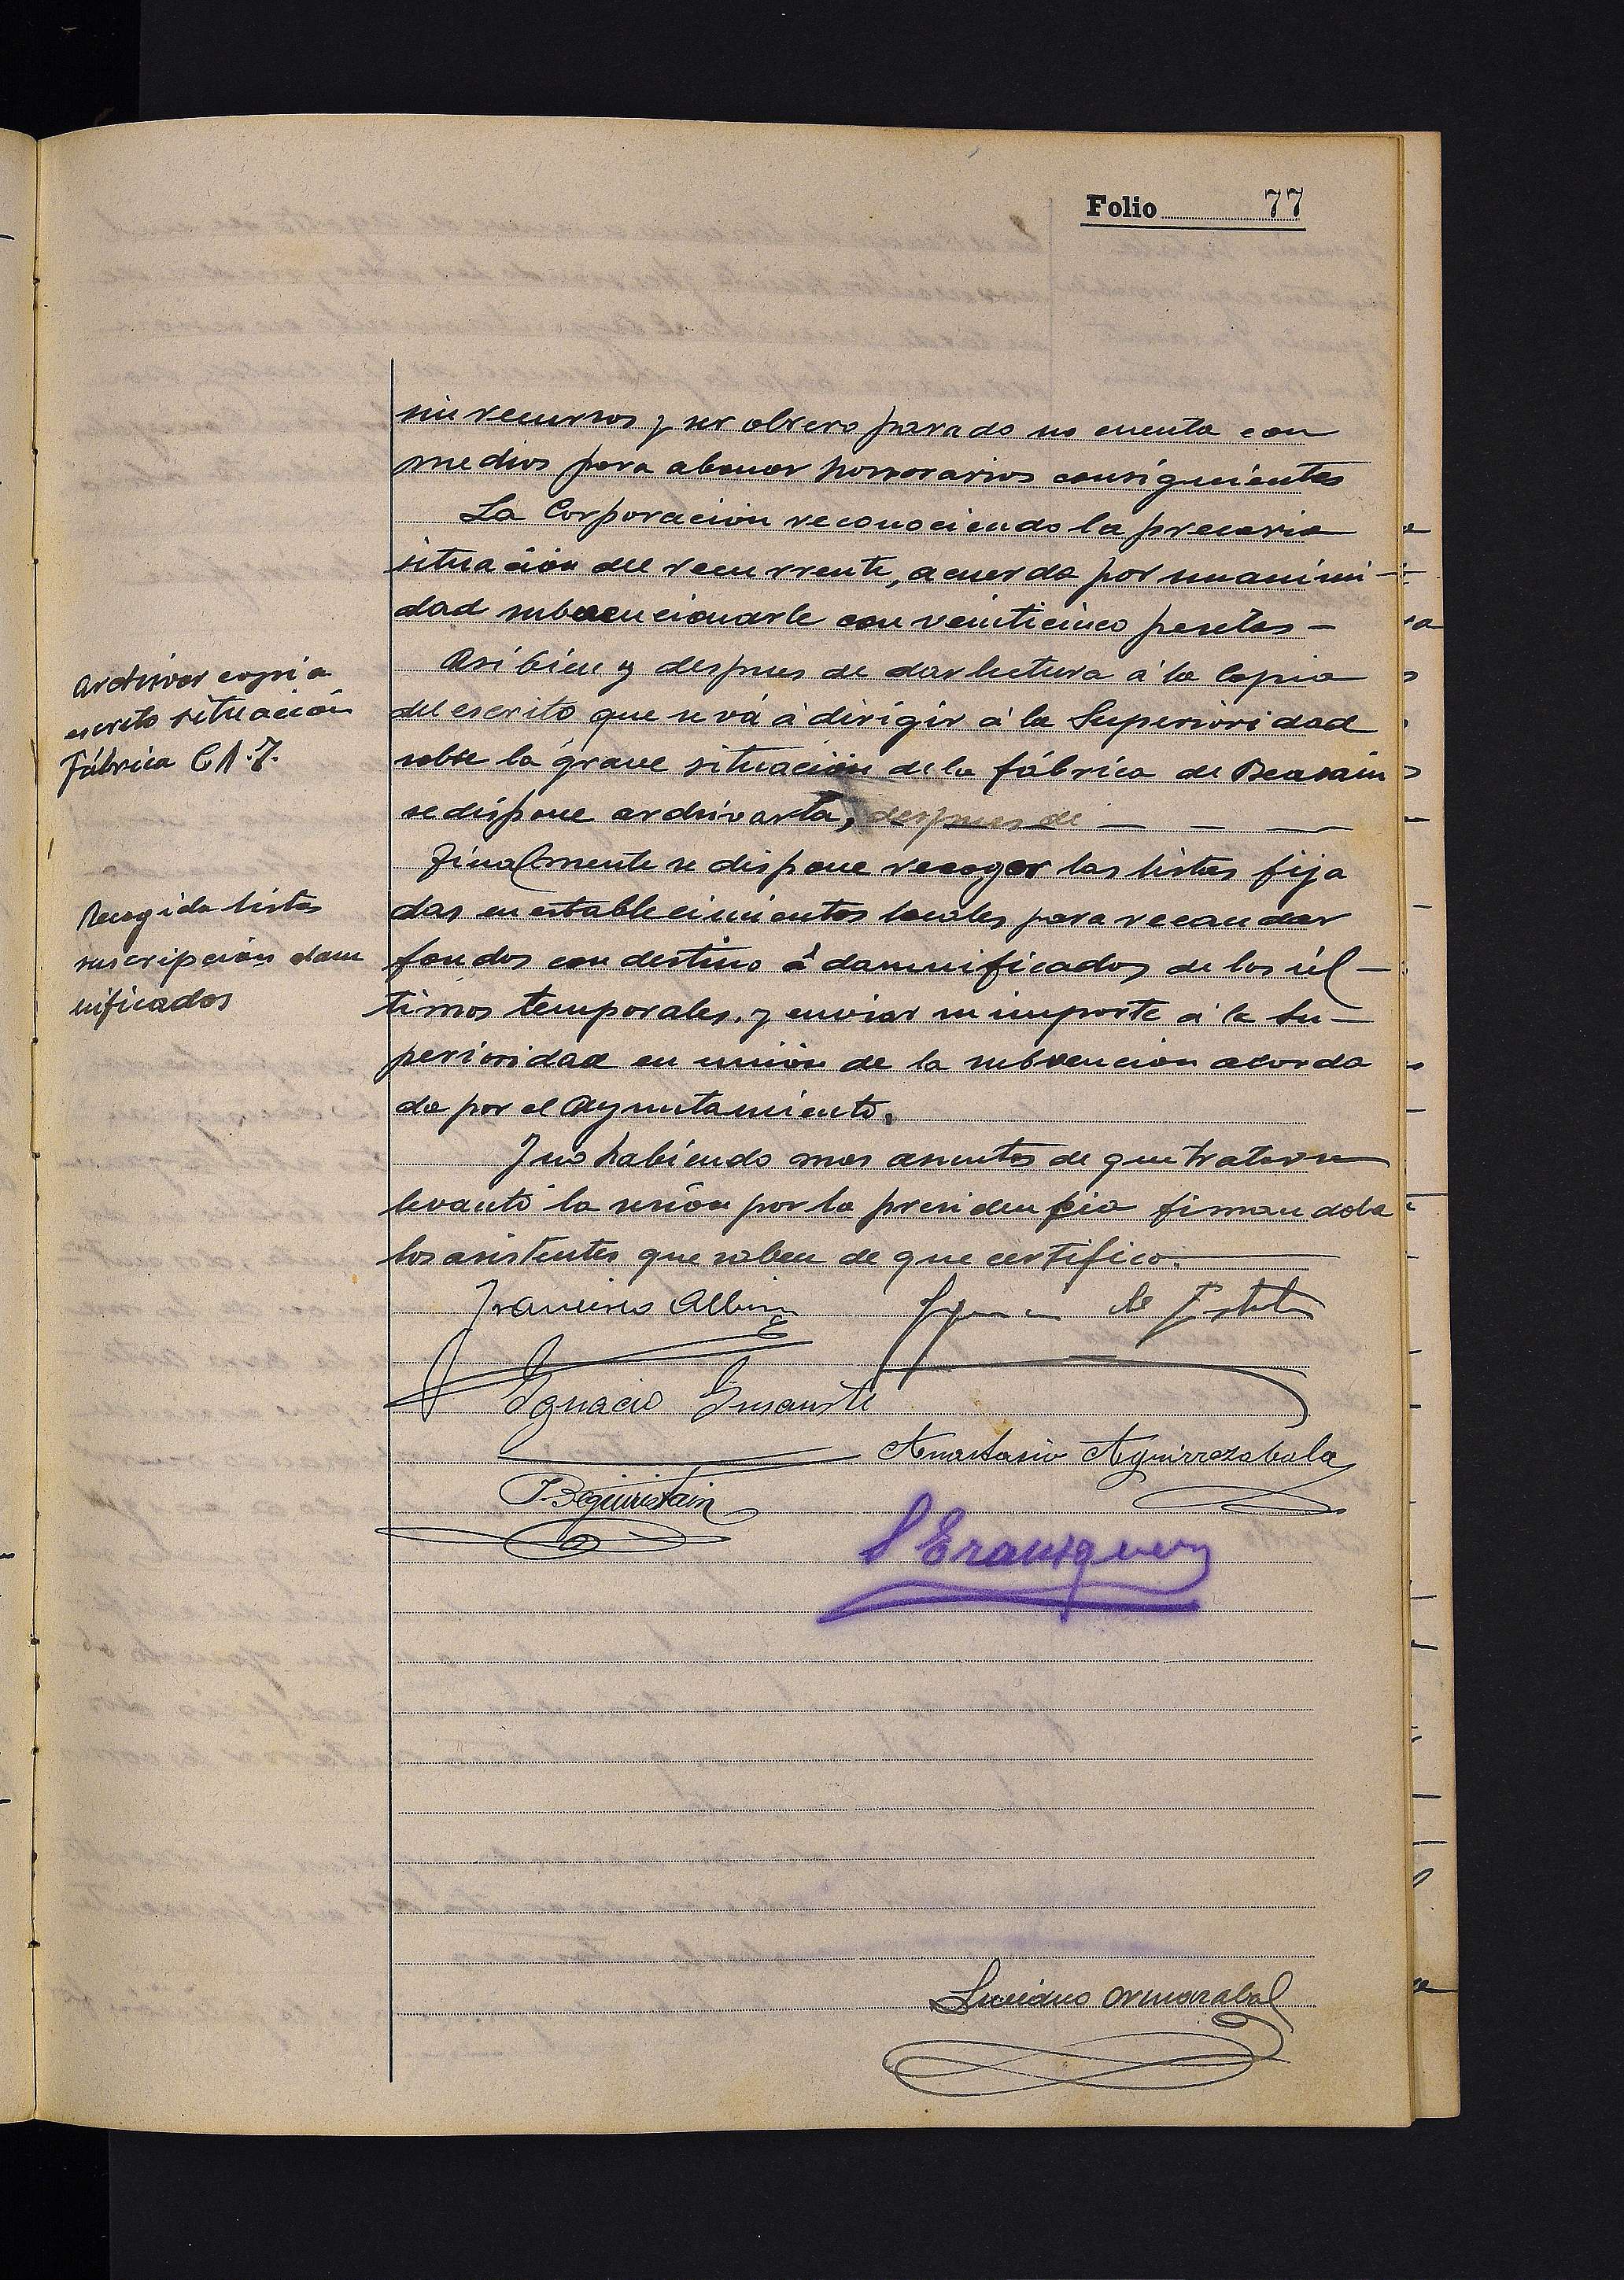 Folio 77
sin recursos y ser obrero parado no cuenta con
medios para abonar honorarios consiguientes
La Corporacion reconociendo la precaria
situación del recurrente, acuerda por unanimi-
dad subvencionarle con veinticinco pesetas -
Archivar copia
escrito situación
Fábrica C A. F.
Asi bien y despues de dar lectura á la Copia
del escrito que se vá á dirigir á la Superioridad
sobre la grave situación de la fábrica de Beasain
se dispone archivarla, despues de
Finalmente se dispone recoger las listas fija
Recogida listas
suscripción dam
nificados
das en establecimientos locales para recaudar
fondos con destino á damnificados de los úl-
timos temporales, y enviar su importe á la Su-
perioridad en unión de la subvencion acorda
da por el Ayuntamiento.
Y no habiendo mas asuntos de que tratar se
levantó la sesión por la presidencia firmandola
los asistentes que saben de que certifico.
Francisco Albin
Ignacio
Anastasio Aguirrezabala
J. Beguiristain
Luciano Ormazabal